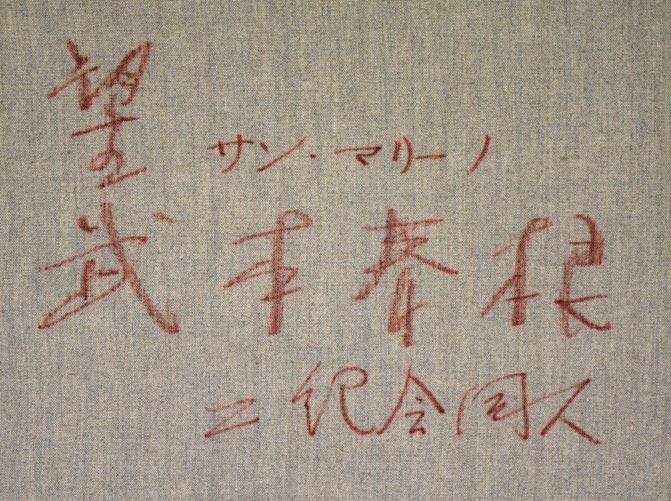 望 サン・マリーノ
武本春根
二紀会同人